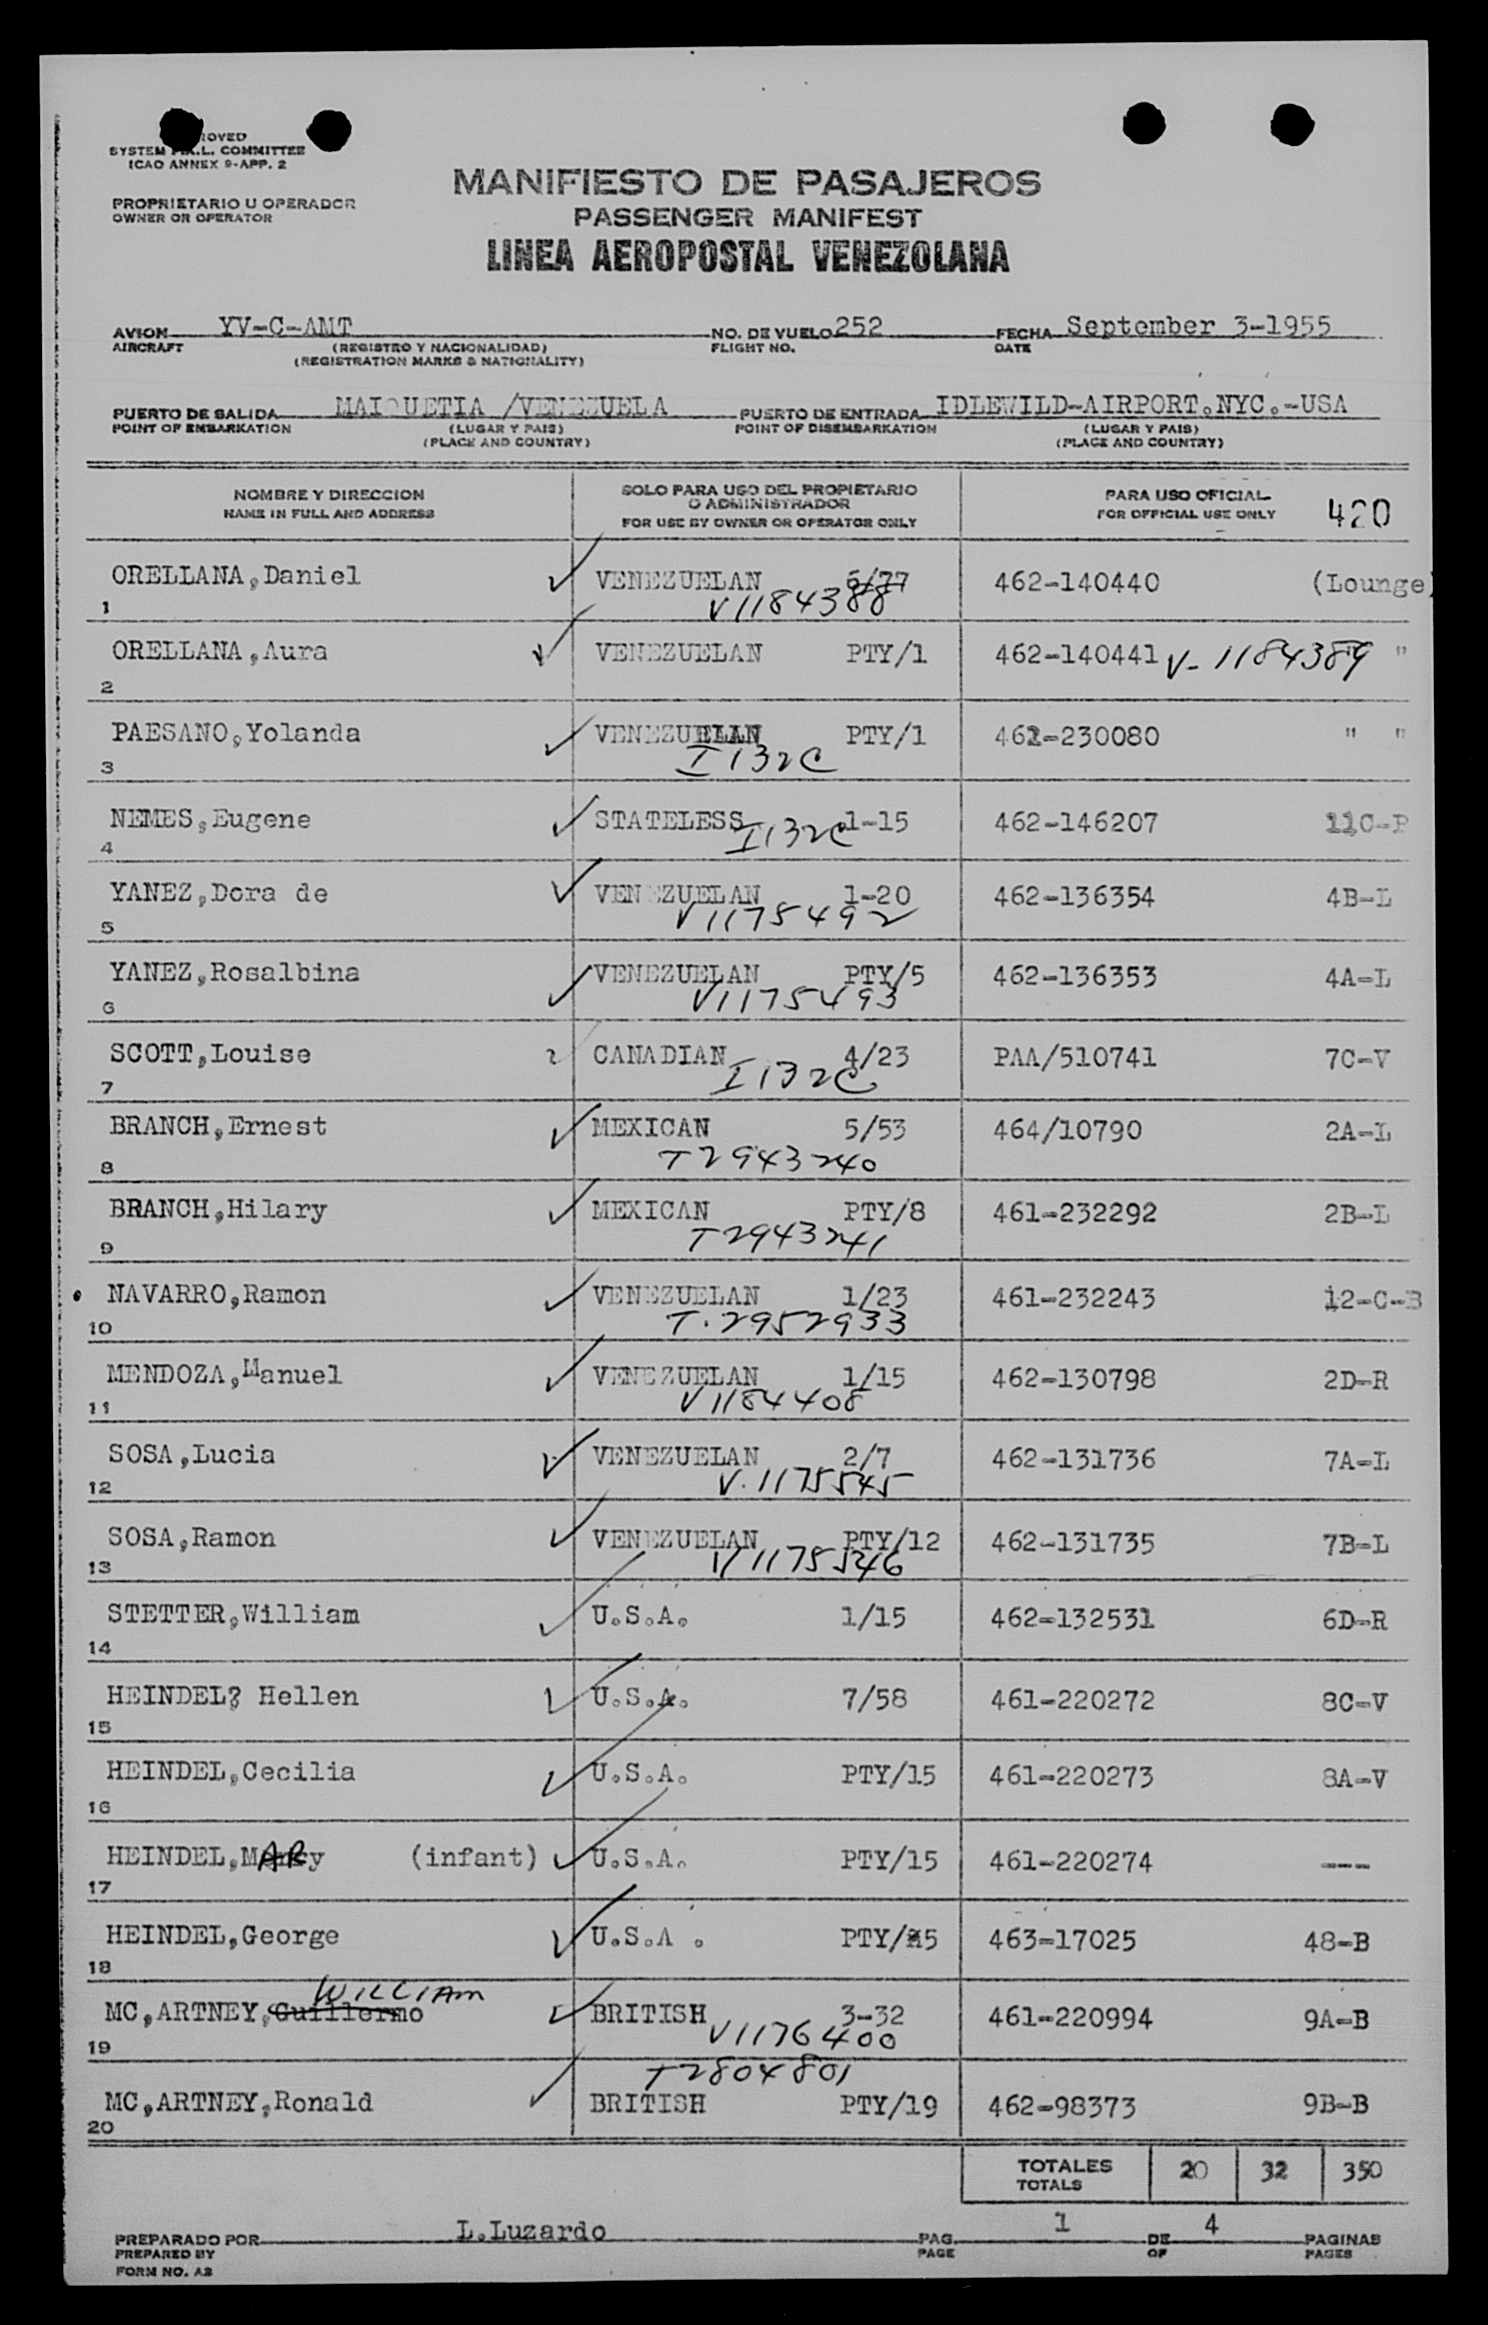 ROVED
SYSTEM F.A.L. COMMITTEE
ICAO ANNEX 9-APP. 2
PROPRIETARIO U OPERADOR
OWNER OR OPERATOR
MANIFIESTO DE PASAJEROS
PASSENGER MANIFEST
LINEA AEROPOSTAL VENEZOLANA
AVION YV-C-AMT NO. DE VUELO 252 FECHA September 3-1955
AIRCRAFT (REGISTRO Y NACIONALIDAD) FLIGHT NO. DATE
(REGISTRATION MARKS & NATIONALITY)
PUERTO DE SALIDA MAIQUETIA /VENEZUELA PUERTO DE ENTRADA IDLEWILD-AIRPORT.NYC.-USA
POINT OF EMBARKATION (LUGAR Y PAIS) POINT OF DISEMBARKATION (LUGAR Y PAIS)
(PLACE AND COUNTRY) (PLACE AND COUNTRY)
NOMBRE Y DIRECCION SOLO PARA USO DEL PROPIETARIO O ADMINISTRADOR PARA USO OFICIAL 420
NAME IN FULL AND ADDRESS FOR USE BY OWNER OR OPERATOR ONLY FOR OFFICIAL USE ONLY
ORELLANA,Daniel VENEZUELAN 6/77 462-140440 (Lounge)
1 V1184388
ORELLANA,Aura VENEZUELAN PTY/1 462-140441 V-1184389 " "
2
PAESANO,Yolanda VENEZUELAN PTY/1 462-230080 " "
3 I132C
NEMES,Eugene STATELESS 1-15 462-146207 11C-B
4 I132C
YANEZ,Dora de VENEZUELAN 1-20 462-136354 4B-L
5 V1175492
YANEZ,Rosalbina VENEZUELAN PTY/5 462-136353 4A-L
6 V1175493
SCOTT,Louise CANADIAN 4/23 PAA/510741 7C-V
7 I132C
BRANCH,Ernest MEXICAN 5/53 464/10790 2A-L
8 T2943240
BRANCH,Hilary MEXICAN PTY/8 461-232292 2B-L
9 T2943241
NAVARRO,Ramon VENEZUELAN 1/23 461-232243 12-C-B
10 T.2952933
MENDOZA,Manuel VENEZUELAN 1/15 462-130798 2D-R
11 V1184408
SOSA,Lucia VENEZUELAN 2/7 462-131736 7A-L
12 V.1175545
SOSA,Ramon VENEZUELAN PTY/12 462-131735 7B-L
13 V1175546
STETTER,William U.S.A. 1/15 462-132531 6D-R
14
HEINDEL? Hellen U.S.A. 7/58 461-220272 8C-V
15
HEINDEL,Cecilia U.S.A. PTY/15 461-220273 8A-V
16
HEINDEL,MARy (infant) U.S.A. PTY/15 461-220274 ---
17
HEINDEL,George U.S.A . PTY/15 463-17025 48-B
18
WILLIAM
MC,ARTNEY,Guillermo BRITISH 3-32 461-220994 9A-B
19 V1176400
T2804801
MC,ARTNEY,Ronald BRITISH PTY/19 462-98373 9B-B
20
TOTALES 20 32 350
TOTALS
PREPARADO POR L.Luzardo PAG. 1 DE 4 PAGINAS
PREPARED BY PAGE OF PAGES
FORM NO. A2